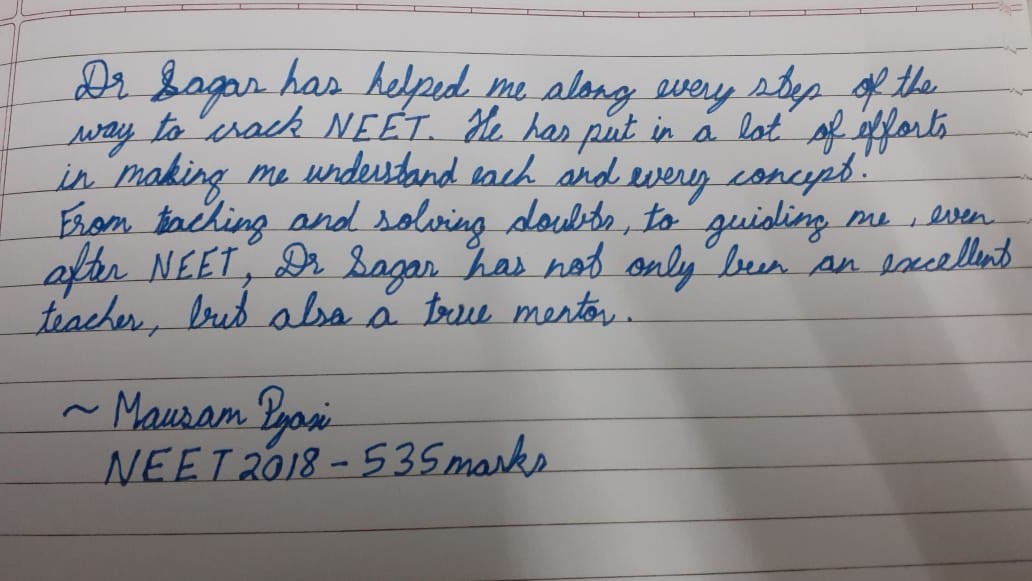 Dr Sagar has helped me along every step of the
way to crack NEET. He has put in a lot of efforts
in making me understand each and every concept.
From teaching and solving doubts, to guiding me, even
after NEET, Dr Sagar has not only been an excellent
teacher, but also a true mentor.
~ Mausam Pyasi
NEET 2018 - 535 marks